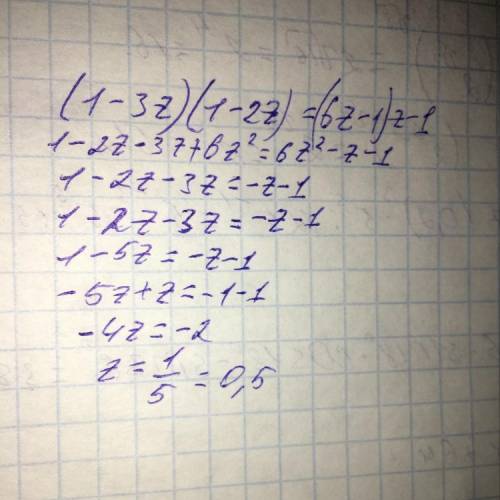 (1-3z)(1-2z)=(6z-1)z-1
1-2z-3z+6z²=6z²-z-1
1-2z-3z=-z-1
1-2z-3z=-z-1
1-5z=-z-1
-5z+z=-1-1
-4z=-2
z=1/5=0,5